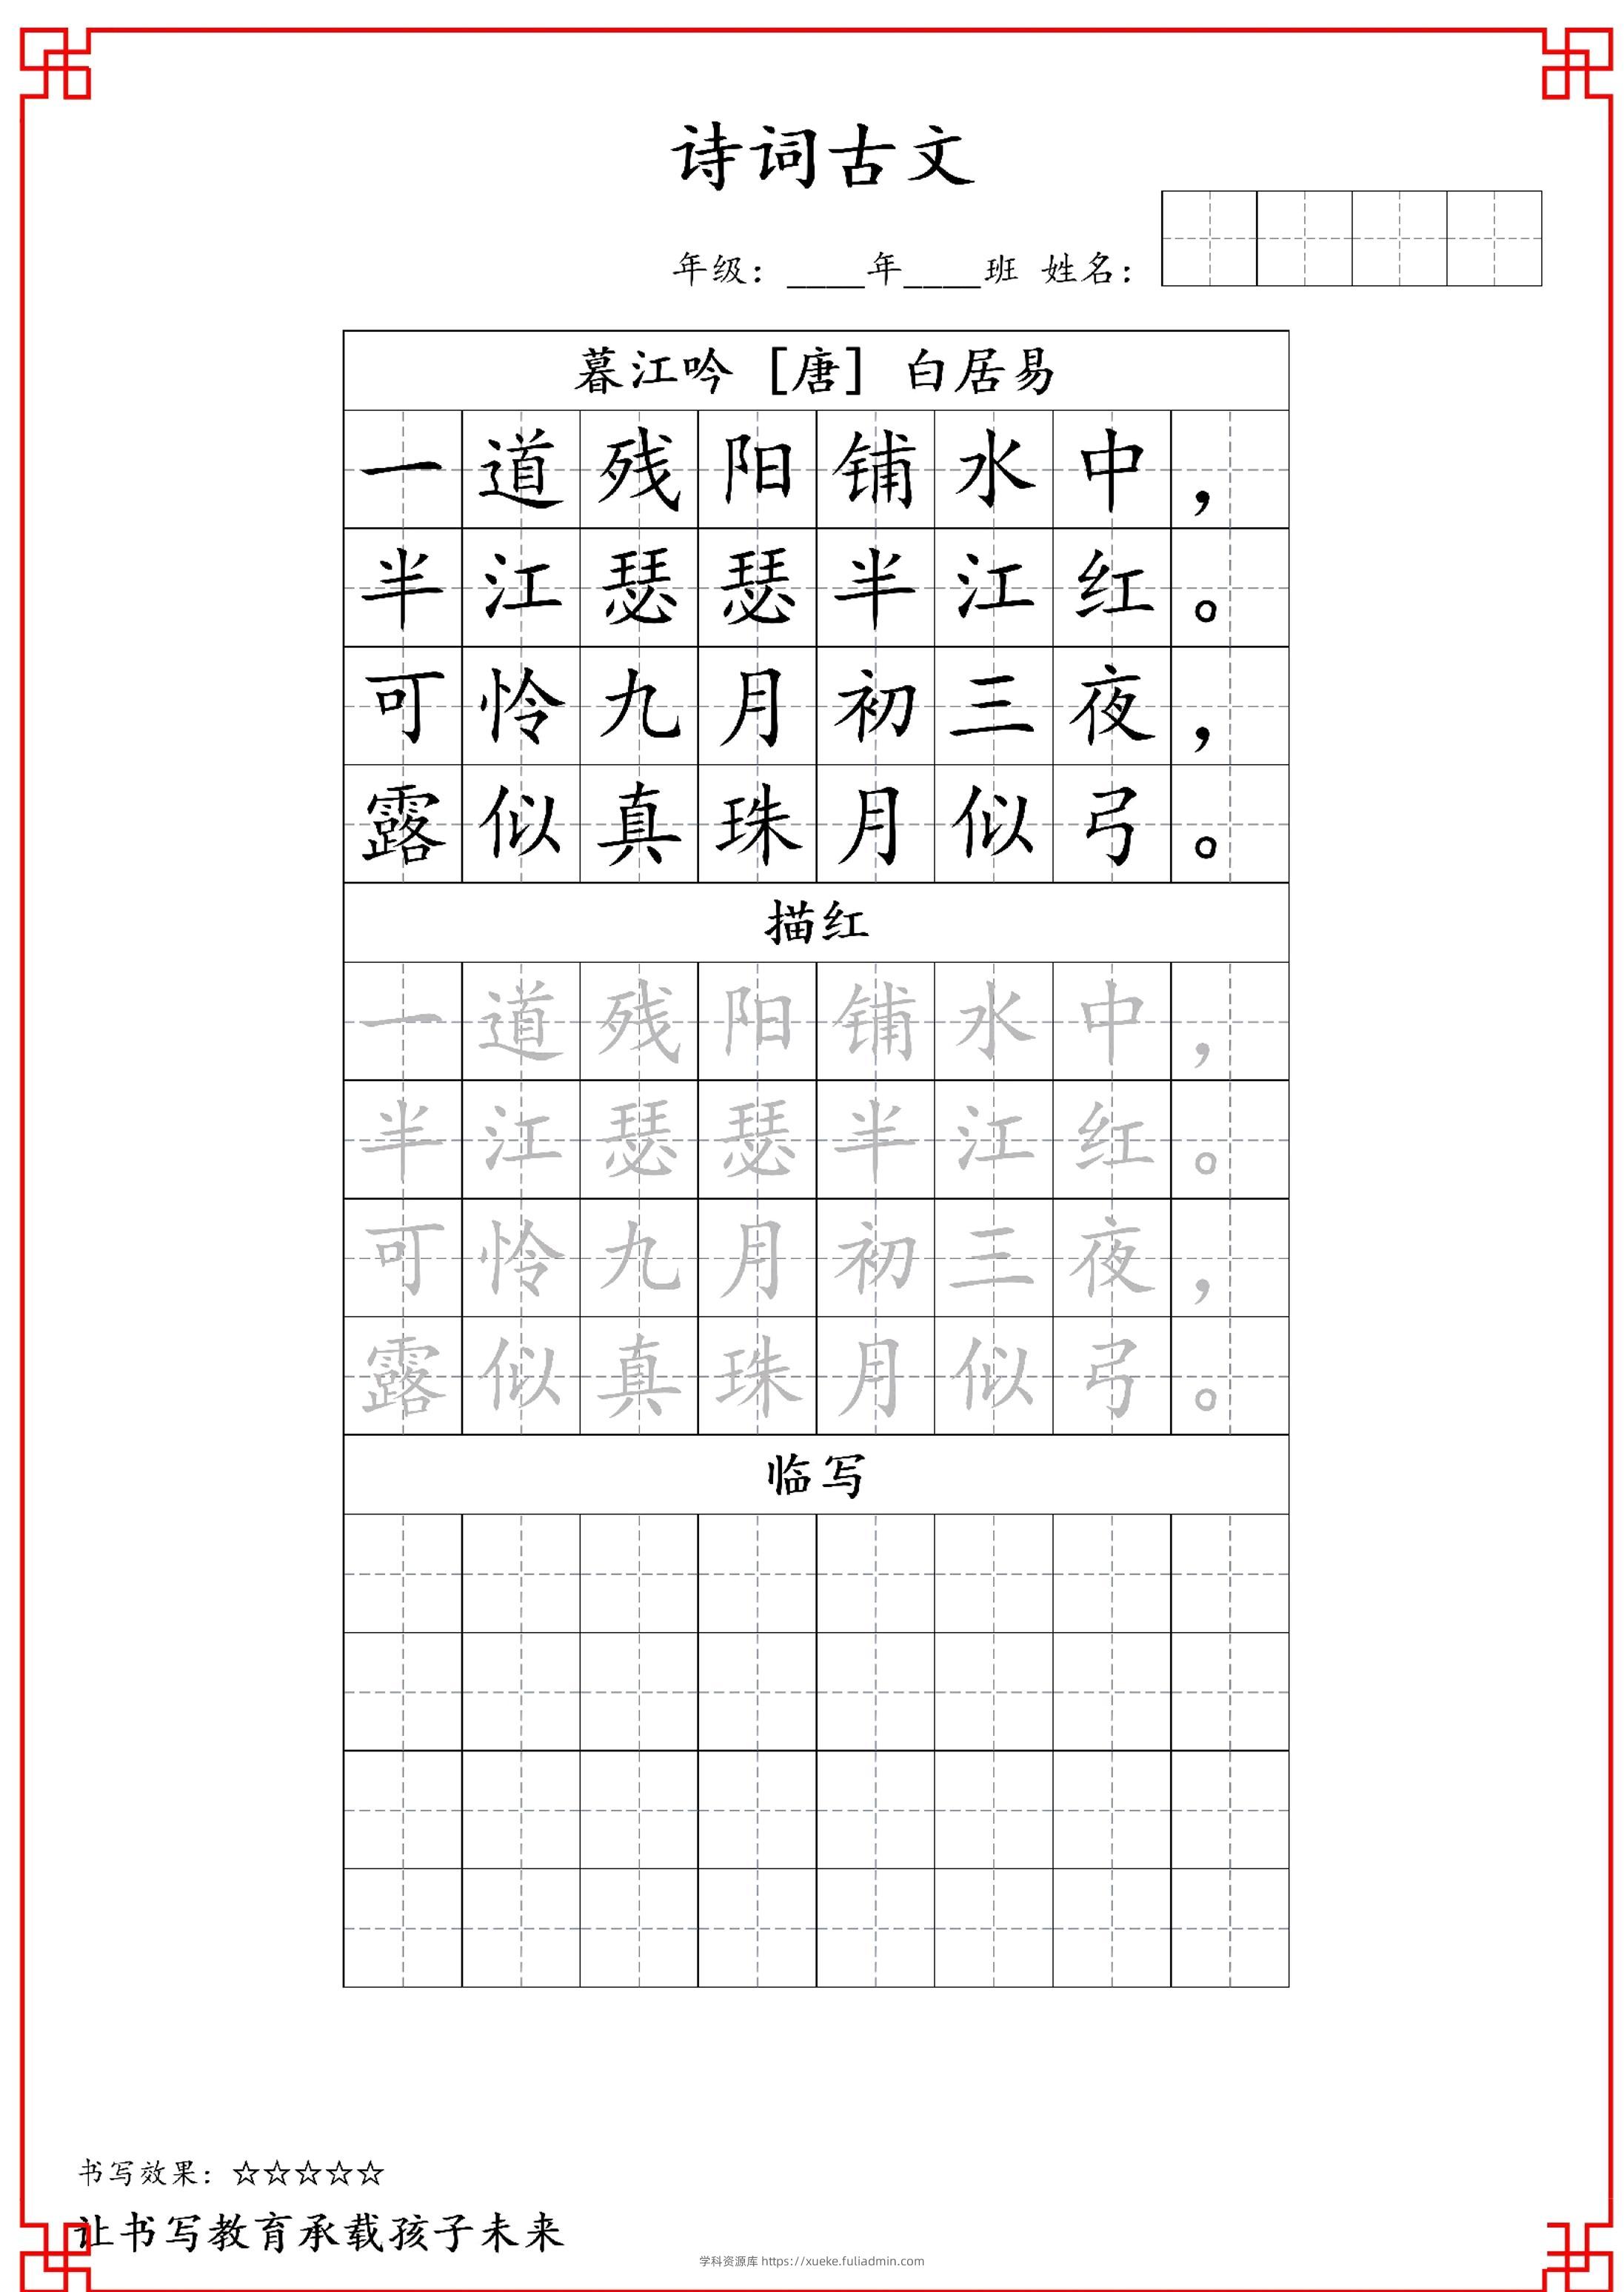 诗词古文
年级：____年____班 姓名：
暮江吟［唐］白居易
一道残阳铺水中，
半江瑟瑟半江红。
可怜九月初三夜，
露似真珠月似弓。
描红
一道残阳铺水中，
半江瑟瑟半江红。
可怜九月初三夜，
露似真珠月似弓。
临写
书写效果：☆☆☆☆☆
让书写教育承载孩子未来
学科资源库 https://xueke.fuliadmin.com